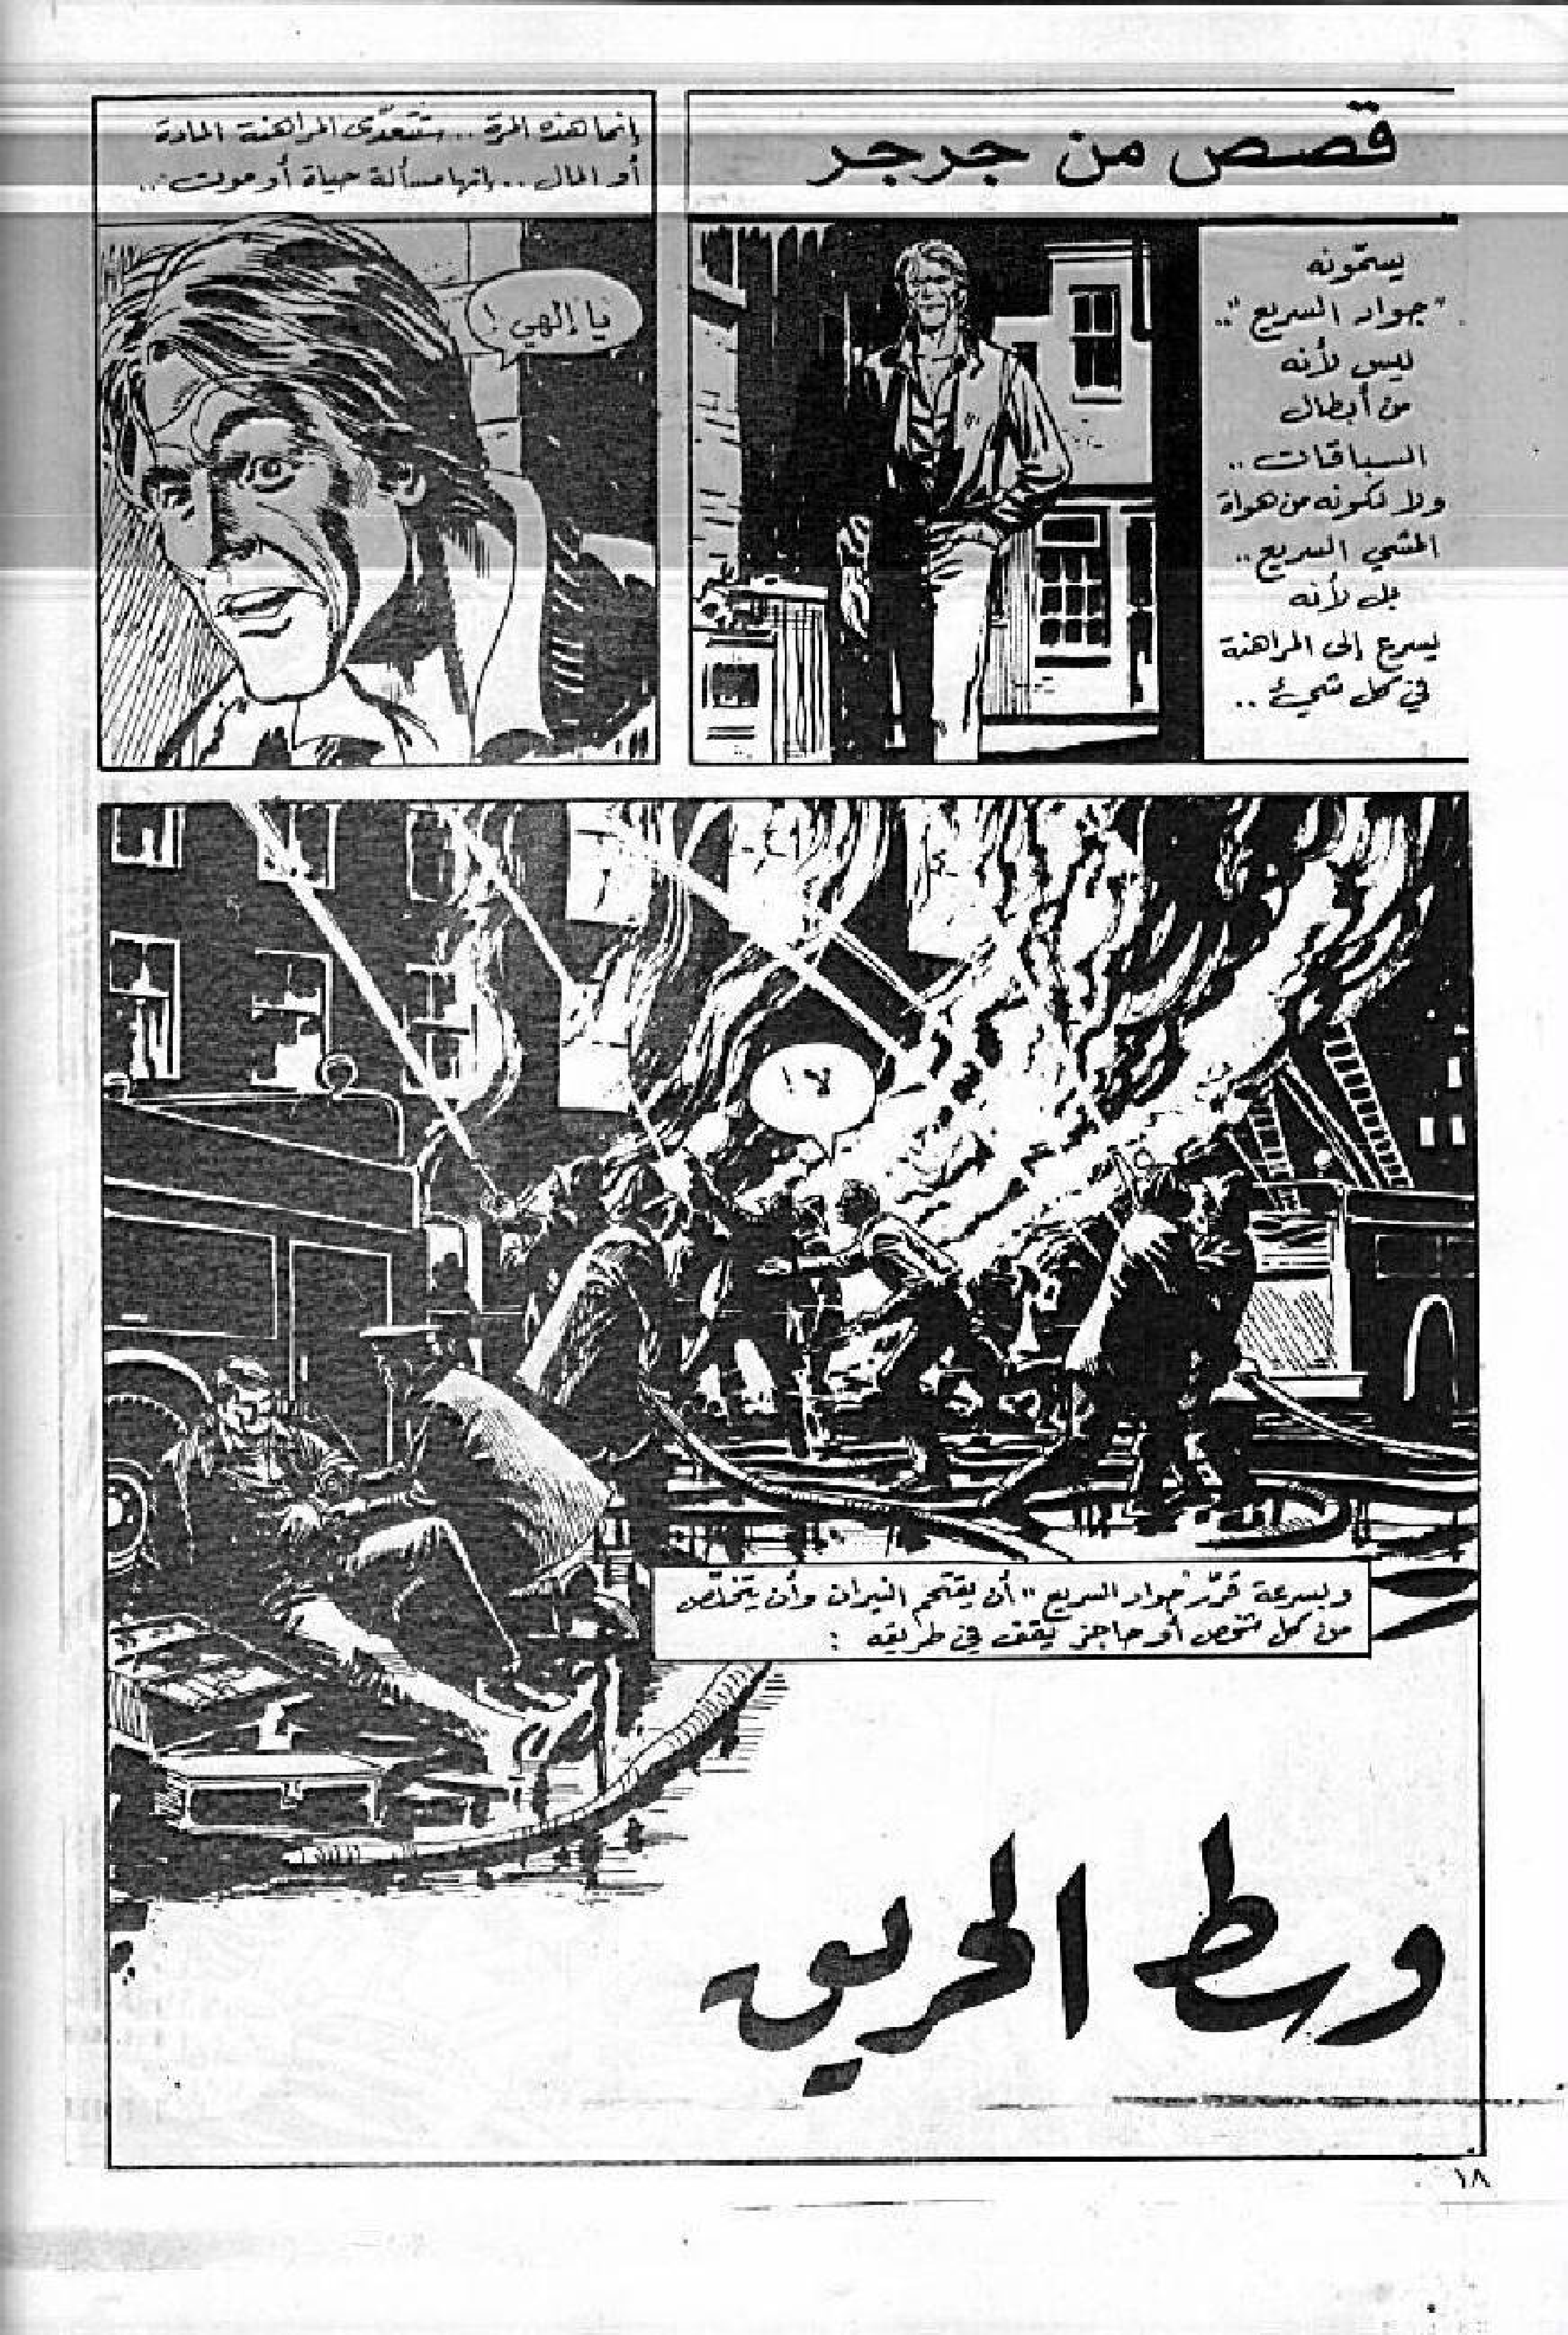 قصص من جرجر
يسمّونه
"جواد السريع"..
ليس لأنه
من أبطال
السباقات..
ولا لكونه من هواة
المشي السريع..
بل لأنه
يسرع إلى المراهنة
في كل شيء..
إنما هذه المرة.. ستتعدّى المراهنة المادة
أو المال.. إنها مسألة حياة أو موت..
يا إلهي!
لا!
وبسرعة قرّر "جواد السريع" أن يقتحم النيران وأن يتخلّص
من كل شخص أو حاجز يقف في طريقه:
وسط الحريق
١٨